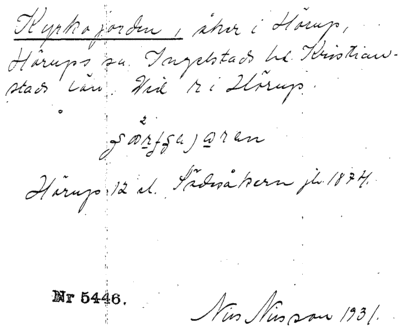 Kyrkojorden, åker i Hörup,
Hörups sn. Ingelstads hd. Kristian-
stads län. Vid r i Hörup.
Hörup 12 el. Sädesåkern jb. 1874.
Nr 5446.
Nils Nilsson 1931.